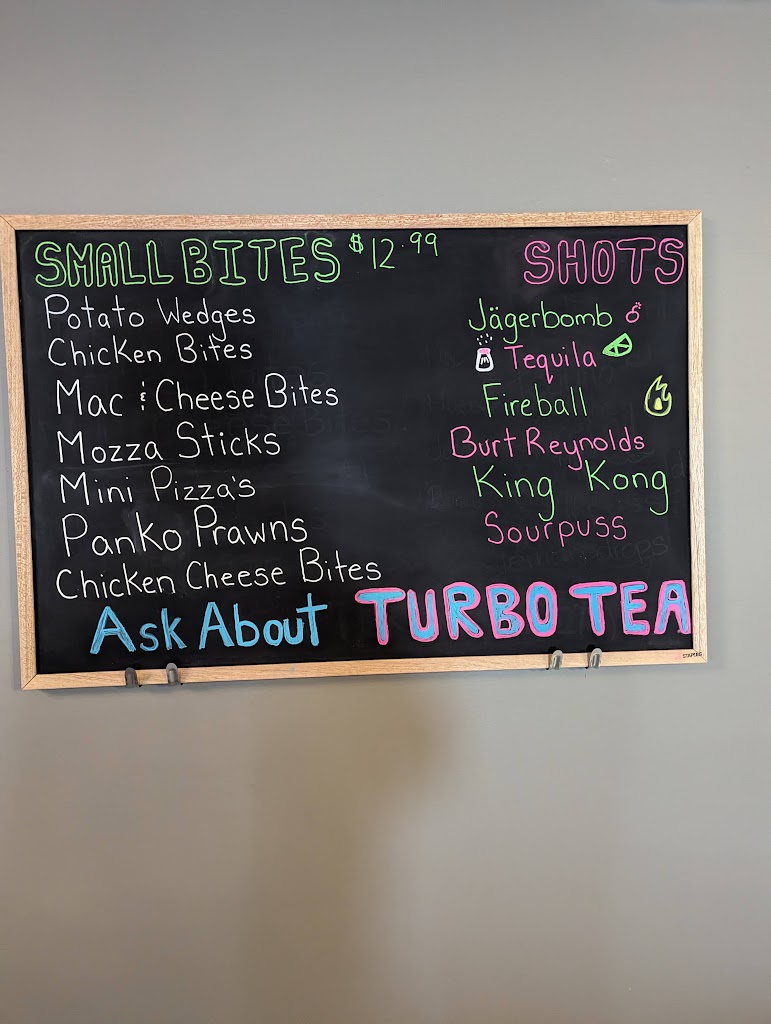 SMALL BITES $12.99
Potato Wedges
Chicken Bites
Mac & Cheese Bites
Mozza Sticks
Mini Pizza's
Panko Prawns
Chicken Cheese Bites
SHOTS
Jägerbomb
Tequila
Fireball
Burt Reynolds
King Kong
Sourpuss
Ask About TURBO TEA
STAPLES